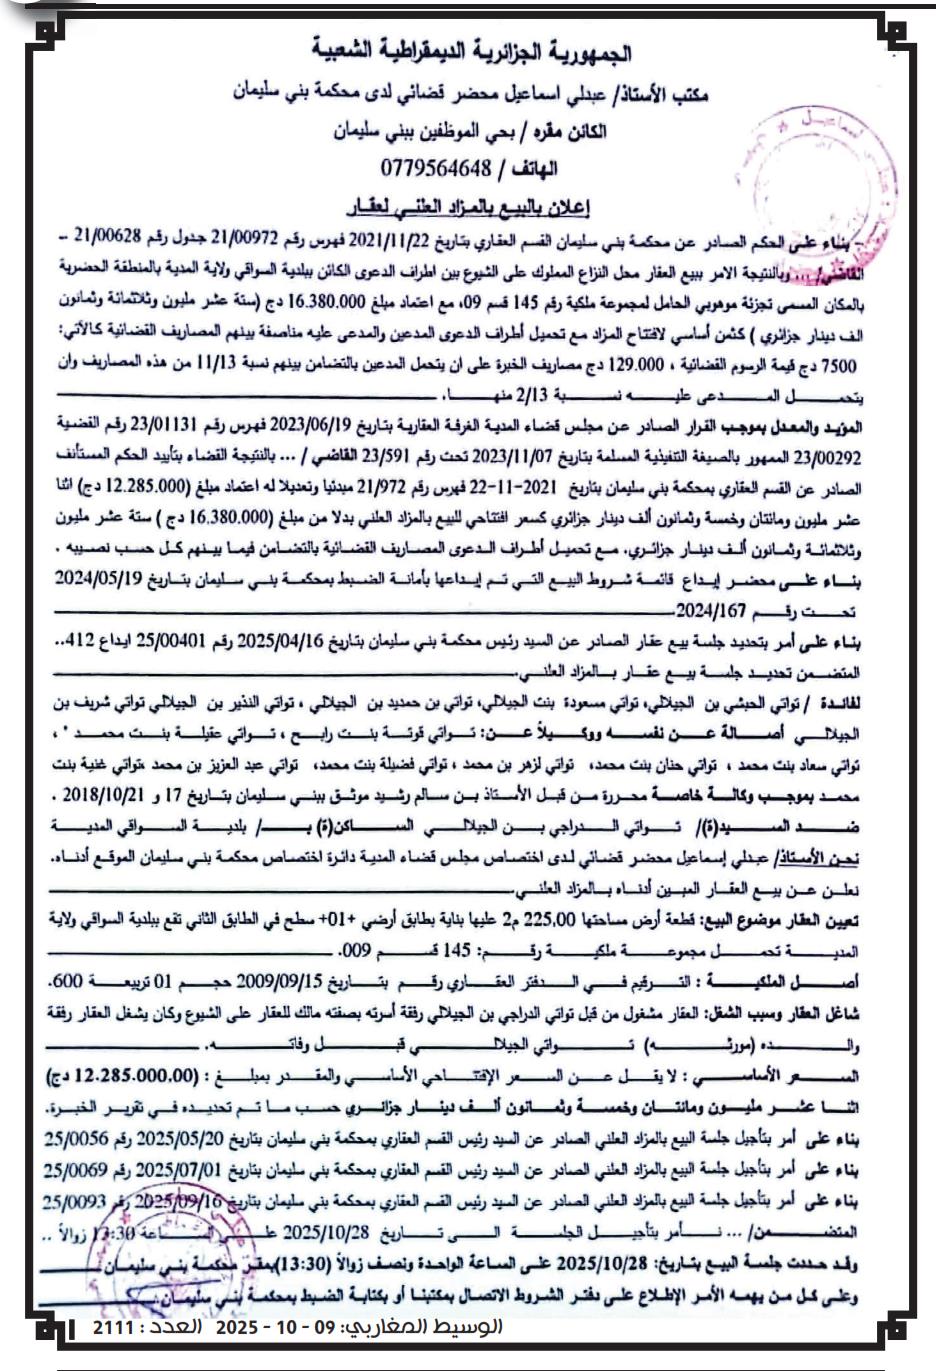 الجمهورية الجزائرية الديمقراطية الشعبية
مكتب الأستاذ/ عبدلي اسماعيل محضر قضائي لدى محكمة بني سليمان
الكائن مقره / بحي الموظفين ببني سليمان
الهاتف / 0779564648
إعلان بالبيع بالمزاد العلني لعقار
– بناء على الحكم الصادر عن محكمة بني سليمان القسم العقاري بتاريخ 2021/11/22 فهرس رقم 21/00972 جدول رقم 21/00628 –
القاضي/ ... وبالنتيجة الامر ببيع العقار محل النزاع المملوك على الشيوع بين اطراف الدعوى الكائن ببلدية السواقي ولاية المدية بالمنطقة الحضرية
بالمكان المسمى تجزئة موهوبي الحامل لمجموعة ملكية رقم 145 قسم 09، مع اعتماد مبلغ 16.380.000 دج (ستة عشر مليون وثلاثمائة وثمانون
الف دينار جزائري ) كثمن أساسي لافتتاح المزاد مع تحميل أطراف الدعوى المدعين والمدعى عليه مناصفة بينهم المصاريف القضائية كالآتي:
7500 دج قيمة الرسوم القضائية ، 129.000 دج مصاريف الخبرة على ان يتحمل المدعين بالتضامن بينهم نسبة 11/13 من هذه المصاريف وان
يتحمل المدعى عليه نسبة 2/13 منها.
المؤيد والمعدل بموجب القرار الصادر عن مجلس قضاء المدية الغرفة العقارية بتاريخ 2023/06/19 فهرس رقم 23/01131 رقم القضية
23/00292 الممهور بالصيغة التنفيذية المسلمة بتاريخ 2023/11/07 تحت رقم 23/591 القاضي / ... بالنتيجة القضاء بتأييد الحكم المستأنف
الصادر عن القسم العقاري بمحكمة بني سليمان بتاريخ 2021-11-22 فهرس رقم 21/972 مبدئيا وتعديلا له اعتماد مبلغ (12.285.000 دج) اثنا
عشر مليون ومائتان وخمسة وثمانون ألف دينار جزائري كسعر افتتاحي للبيع بالمزاد العلني بدلا من مبلغ (16.380.000 دج ) ستة عشر مليون
وثلاثمائة وثمانون ألف دينار جزائري. مع تحميل أطراف الدعوى المصاريف القضائية بالتضامن فيما بينهم كل حسب نصيبه .
بناء على محضر إيداع قائمة شروط البيع التي تم إيداعها بأمانة الضبط بمحكمة بني سليمان بتاريخ 2024/05/19
تحت رقم 2024/167
بناء على أمر بتحديد جلسة بيع عقار الصادر عن السيد رئيس محكمة بني سليمان بتاريخ 2025/04/16 رقم 25/00401 ايداع 412..
المتضمن تحديد جلسة بيع عقار بالمزاد العلني.
لفائدة / تواتي الحبشي بن الجيلالي، تواتي مسعودة بنت الجيلالي، تواتي بن حميد بن الجيلالي ، تواتي النذير بن الجيلالي تواتي شريف بن
الجيلالي أصالة عن نفسه ووكيلاً عن: تواتي قوتة بنت رابح ، تواتي عقيلة بنت محمد ،
تواتي سعاد بنت محمد ، تواتي حنان بنت محمد، تواتي لزهر بن محمد ، تواتي فضيلة بنت محمد، تواتي عبد العزيز بن محمد ،تواتي غنية بنت
محمد بموجب وكالة خاصة محررة من قبل الأستاذ بن سالم رشيد موثق ببني سليمان بتاريخ 17 و 2018/10/21 .
ضد السيد(ة)/ تواتي الدراجي بن الجيلالي الساكن(ة) بـ/ بلدية السواقي المدية
نحن الأستاذ/ عبدلي إسماعيل محضر قضائي لدى اختصاص مجلس قضاء المدية دائرة اختصاص محكمة بني سليمان الموقع أدناه.
نعلن عن بيع العقار المبين أدناه بالمزاد العلني.
تعيين العقار موضوع البيع: قطعة أرض مساحتها 225,00 م2 عليها بناية بطابق أرضي +01+ سطح في الطابق الثاني تقع ببلدية السواقي ولاية
المدية تحمل مجموعة ملكية رقم: 145 قسم 009.
أصل الملكية : الترقيم في الدفتر العقاري رقم بتاريخ 2009/09/15 حجم 01 تربيعة 600.
شاغل العقار وسبب الشغل: العقار مشغول من قبل تواتي الدراجي بن الجيلالي رفقة أسرته بصفته مالك للعقار على الشيوع وكان يشغل العقار رفقة
والده (مورثه) تواتي الجيلالي قبل وفاته.
السعر الأساسي : لا يقل عن السعر الإفتتاحي الأساسي والمقدر بمبلغ : (12.285.000.00 دج)
اثنا عشر مليون ومائتان وخمسة وثمانون ألف دينار جزائري حسب ما تم تحديده في تقرير الخبرة.
بناء على أمر بتأجيل جلسة البيع بالمزاد العلني الصادر عن السيد رئيس القسم العقاري بمحكمة بني سليمان بتاريخ 2025/05/20 رقم 25/0056
بناء على أمر بتأجيل جلسة البيع بالمزاد العلني الصادر عن السيد رئيس القسم العقاري بمحكمة بني سليمان بتاريخ 2025/07/01 رقم 25/0069
بناء على أمر بتأجيل جلسة البيع بالمزاد العلني الصادر عن السيد رئيس القسم العقاري بمحكمة بني سليمان بتاريخ 2025/09/16 رقم 25/0093
المتضمن/ ... نأمر بتأجيل الجلسة الى تاريخ 2025/10/28 على الساعة 13:30 زوالاً ..
وقد حددت جلسة البيع بتاريخ: 2025/10/28 على الساعة الواحدة ونصف زوالاً (13:30)بمقر محكمة بني سليمان
وعلى كل من يهمه الأمر الإطلاع على دفتر الشروط الاتصال بمكتبنا أو بكتابة الضبط بمحكمة بني سليمان
الوسيط المغاربي: 09 - 10 - 2025 العدد : 2111